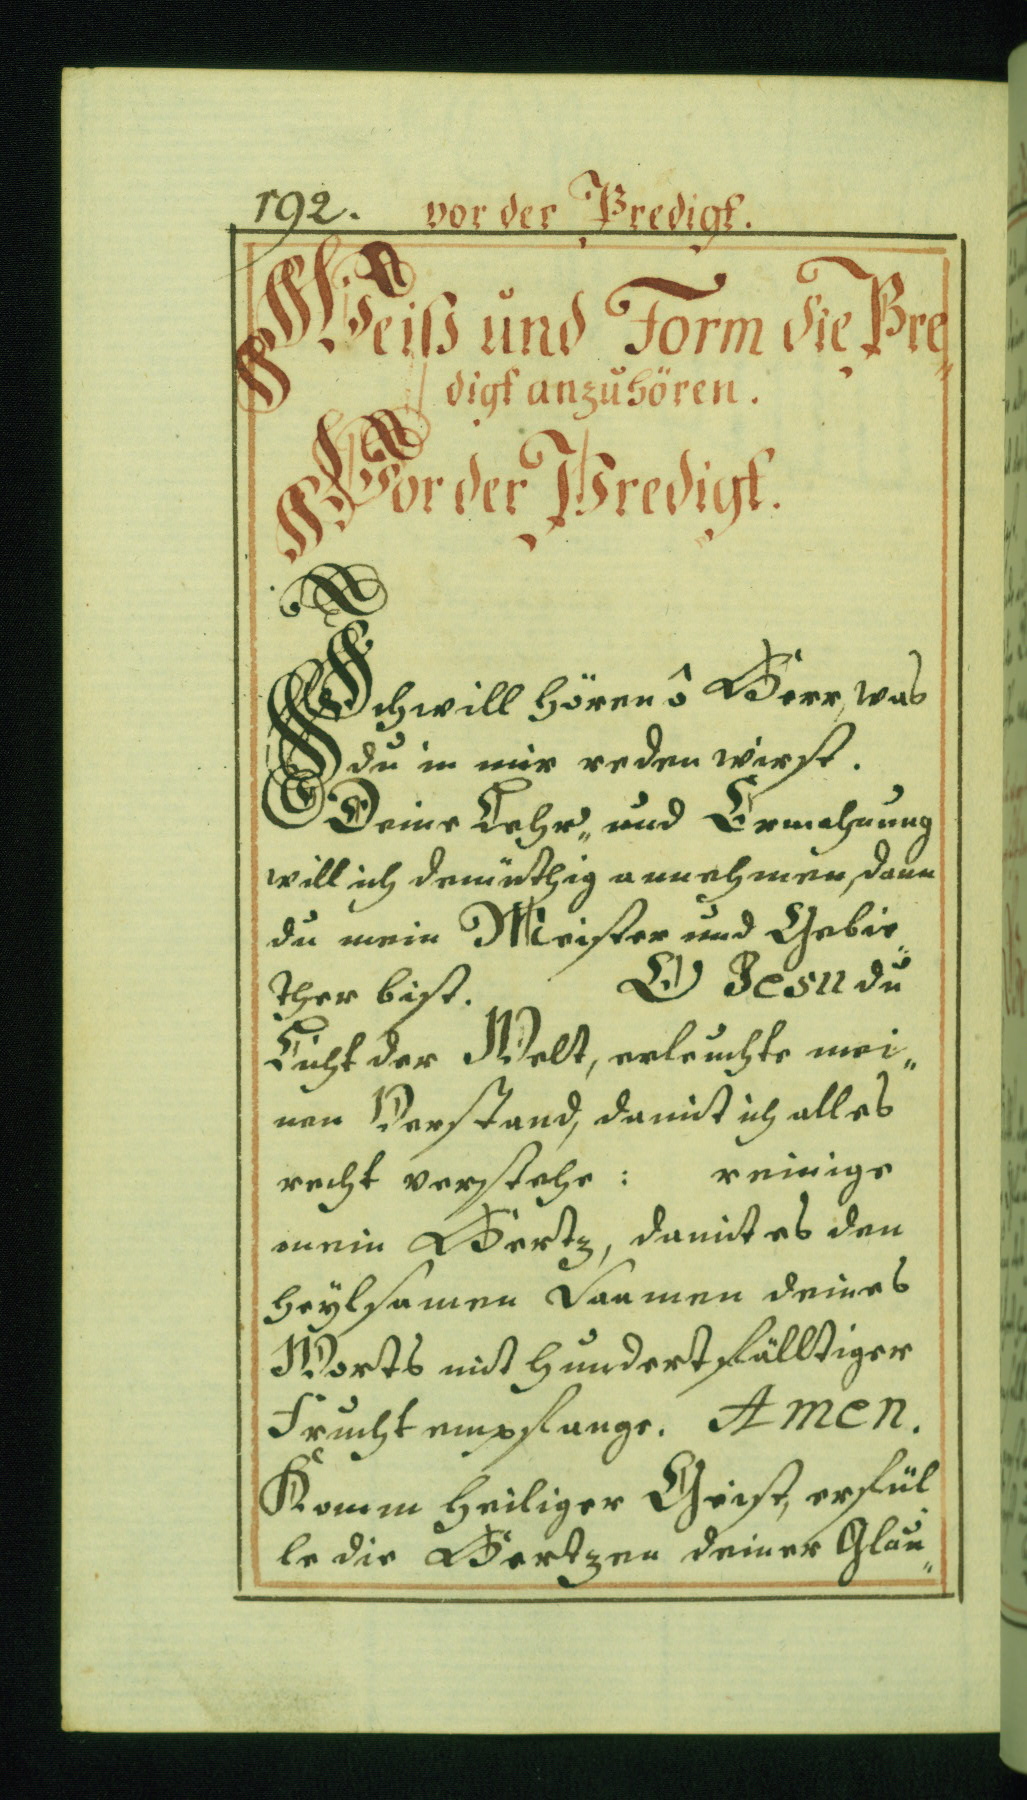 192. vor der Predigt.
Weiß und Form die Pre„
digt anzuhören.
Vor der Predigt.
Ich will hören ô Herr, was
du in mir reden wirst.
Deine Lehr„ und Ermahnung
will ich demüthig annehmen, dann
du mein Meister und Gebie„
ther bist. O Jesu du
Licht der Welt, erleuchte mei„
nen Verstand, damit ich alles
recht verstehe: reinige
mein Hertz, damit es den
heÿlsamen Saamen deines
Worts mit hundertfälltiger
Frucht empfange. Amen.
Komm heiliger Geist, erfül
le die Hertzen deiner Glau„